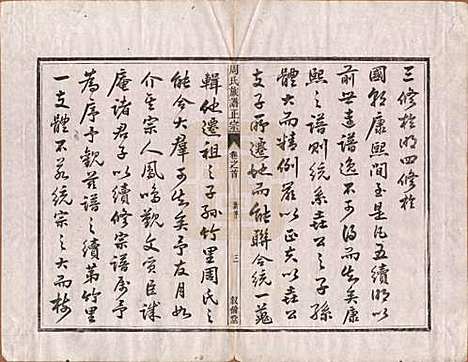 三修於明四修於
國朝康熙間于是凡五續明以
前世遠譜逸不可得而知矣康
熙之譜則統系彝公之子孫
體大而精例嚴以正夫以彝公
支子所遷地而能聯合統一蒐
周氏族譜正宗 卷之首 三 叙倫堂
輯他遷祖之子孫竹里周氏之
能合大群可知矣予友月如
介其宗人鳳鳴觀文貢臣誠
庵諸君子以續修宗譜屬予
為序予觀茲譜之續第竹里
一支體不若統宗之大而於